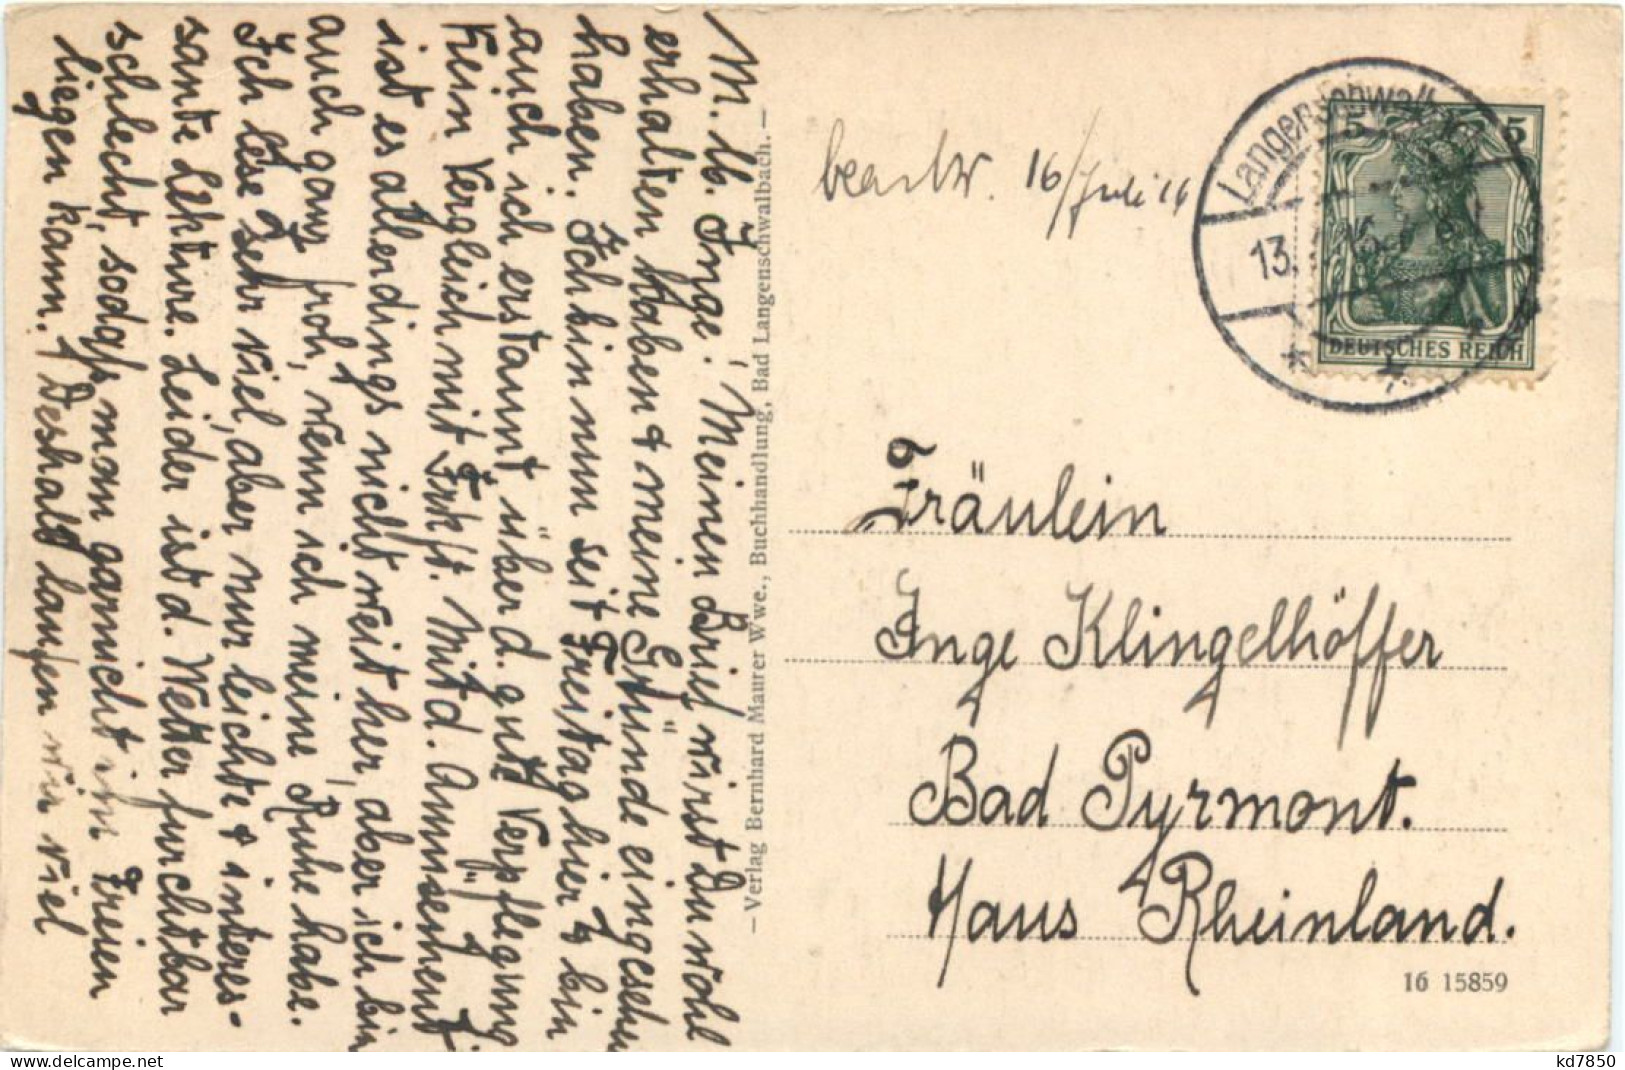 M. lb. Inge! Meinen Brief wirst Du wohl
erhalten haben & meine Gründe eingesehen
haben. Ich bin nun seit Freitag hier & bin
auch ich erstaunt über d. gute Verpflegung
Kein Vergleich mit Frkft. Mit d. Amüsement
ist es allerdings nicht weit her, aber ich bin
auch ganz froh, wenn ich meine Ruhe habe.
Ich lese sehr viel, aber nur leichte & interes-
sante Lektüre. Leider ist d. Wetter furchtbar
schlecht, sodass man garnicht im Freien
liegen kann. Deshalb laufen wir viel
– Verlag Bernhard Maurer Wwe., Buchhandlung, Bad Langenschwalbach. –
beantw. 16/Juli 16
Langenschwalb
13.
5 5
DEUTSCHES REICH
Fräulein
Inge Klingelhöffer
Bad Pyrmont.
Haus Rheinland.
16 15859
https://www.delcampe.net
kd7850